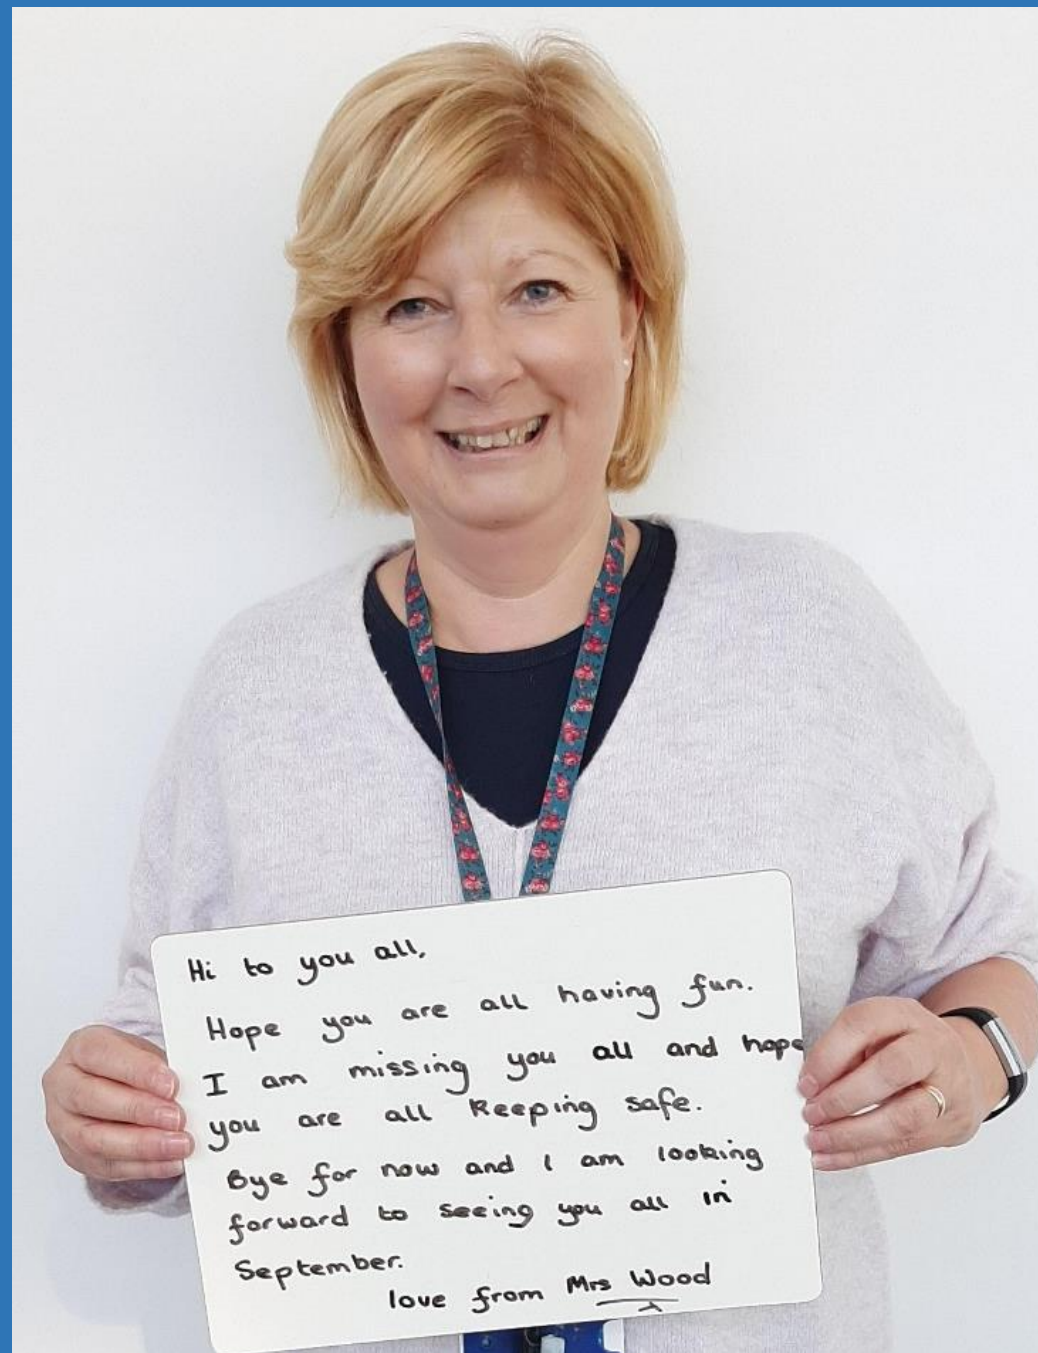 Hi to you all,
Hope you are all having fun.
I am missing you all and hope
you are all keeping safe.
Bye for now and I am looking
forward to seeing you all in
September.
love from Mrs Wood